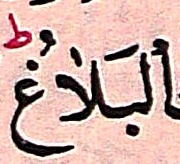 الْبَلَاغُ ؕ